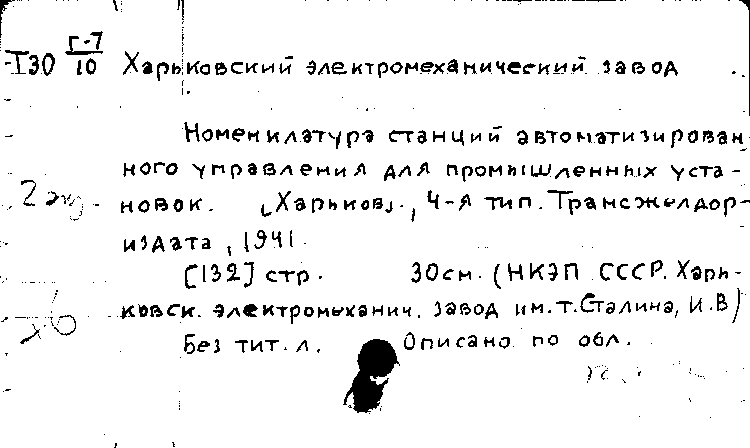 I30 Г-7/10 Харьковский электромеханический завод
Номенклатура станций автоматизирован
ного управления для промышленных уста-
2 экз. новок. [Харьков], 4-я тип. Трансжелдор-
издата, 1941.
[132] стр. 30см. (НКЭП СССР. Харь-
ковск. электромеханич. завод им. т. Сталина, И.В)
Без тит. л. Описано по обл.